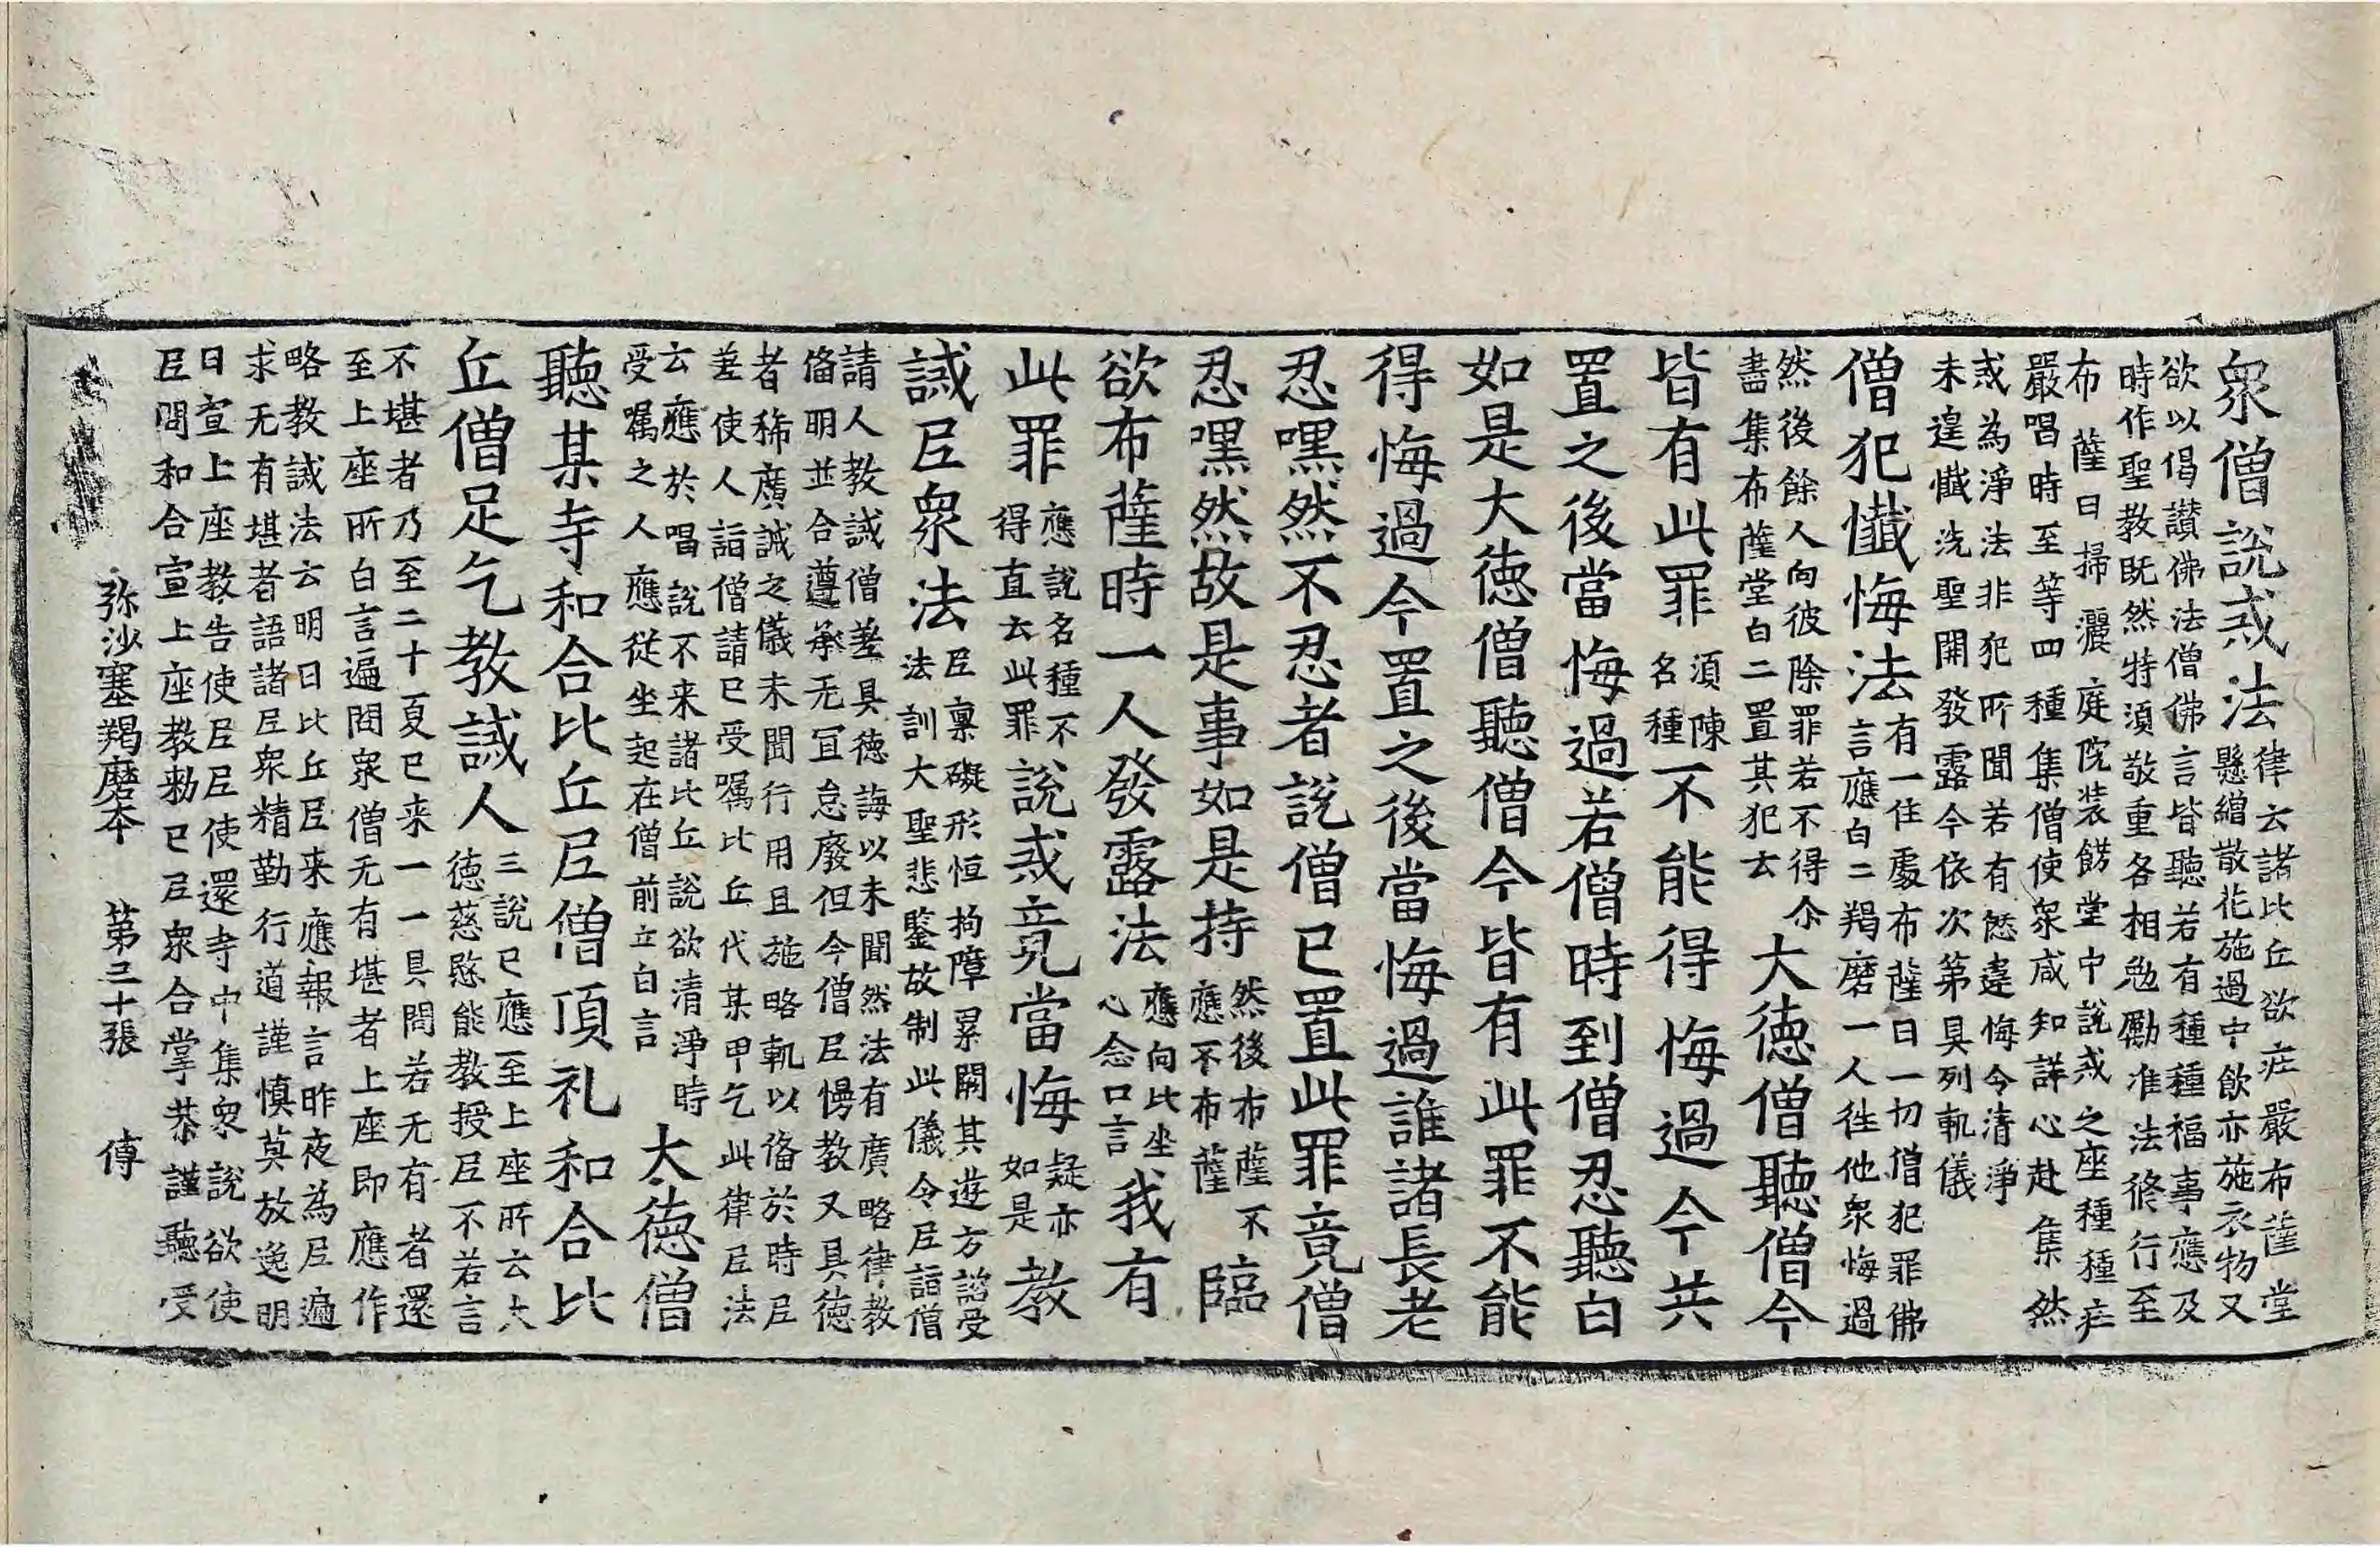 衆僧說戒法律云諸比丘欲庄嚴布薩堂
懸繒散花施過中飲亦施衣物又
欲以偈讃佛法僧佛言皆聽若有種種福事應及
時作聖教既然特湏敬重各相勉勵准法脩行至
布薩日掃灑庭院装餝堂中說戒之座種種庄
嚴唱時至等四種集僧使衆咸知詳心赴集然
戒為淨法非犯所聞若有愆違悔今清淨
未遑懺洗聖開發露今依次第具列軌儀
僧犯懺悔法有一住處布薩日一切僧犯罪佛
言應白二羯磨一人往他衆悔過
然後餘人向彼除罪若不得尒
盡集布薩堂白二置其犯去
大德僧聽僧今
皆有此罪湏陳
名種不能得悔過今共
置之後當悔過若僧時到僧忍聽白
如是大德僧聽僧今皆有此罪不能
得悔過今置之後當悔過誰諸長老
忍嘿然不忍者說僧已置此罪竟僧
忍嘿然故是事如是持然後布薩不
應不布薩臨
欲布薩時一人發露法應向比坐
心念口言我有
此罪應說名種不
得直去此罪說戒竟當悔疑亦
如是教
誡𡰱衆法𡰱稟礙形恒拘障累闕其遊方諮受
法訓大聖悲鍳故制此儀令𡰱詣僧
請人教誡僧差具德誨以未聞然法有廣略律教
俻明並合遵承无冝怠廢但今僧𡰱慢教又具德
者稀廣誡之儀未聞行用且施略軌以俻於時𡰱
差使人詣僧請已受囑比丘代某甲乞此律𡰱法
云應於唱說不来諸比丘說欲清淨時
受囑之人應從坐起在僧前立白言
大德僧
聽某寺和合比丘𡰱僧頂礼和合比
丘僧足乞教誡人三說已應至上座所云大
德慈愍能教授𡰱不若言
不堪者乃至二十夏已来一一具問若无有者還
至上座所白言遍問衆僧无有堪者上座即應作
略教誡法云明日比丘𡰱来應報言昨夜為𡰱遍
求无有堪者語諸𡰱衆精勤行道謹慎莫放逸明
日宣上座教告使𡰱𡰱使還寺中集衆說欲使
𡰱問和合宣上座教勑已𡰱衆合掌恭謹聽受
弥沙塞羯磨本　第三十張　傅